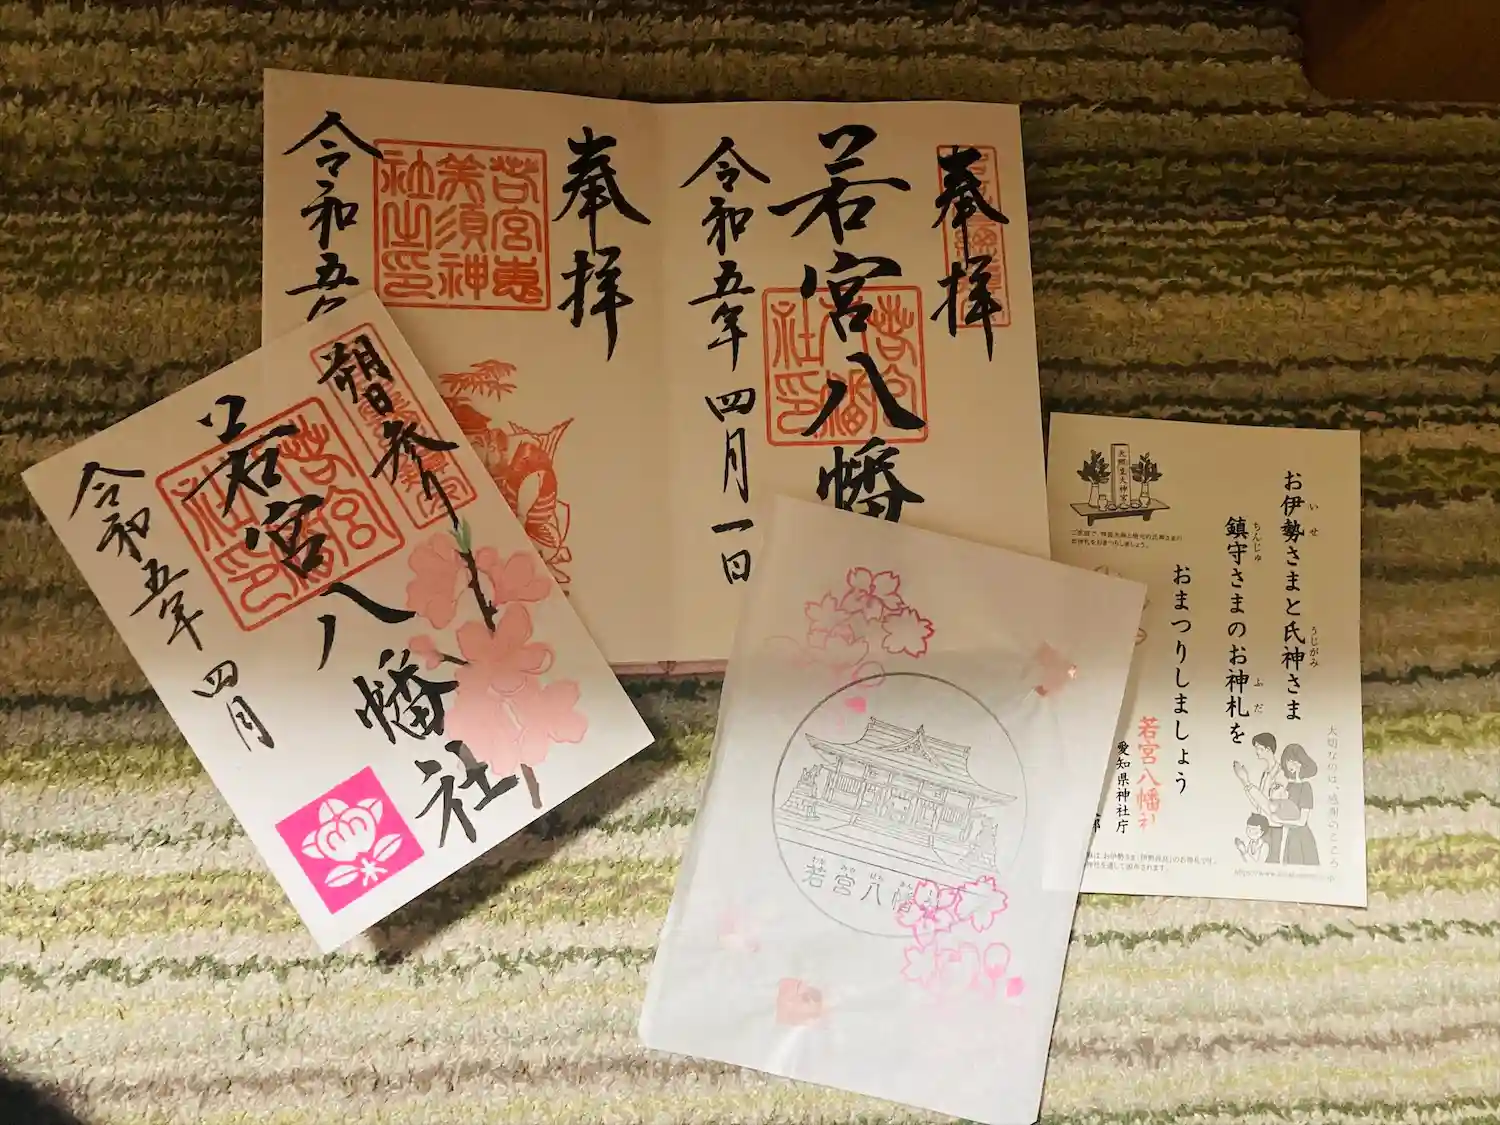 奉拝
若宮八幡
令和五年四月一日
奉拝
若宮恵
美須神
社之印
令和五
朔日参り
若宮八幡社
令和五年四月
若宮八幡
わか みや はち まん
お伊勢さまと氏神さま
いせ うじがみ
鎮守さまのお神札を
ちんじゅ ふだ
おまつりしましょう
若宮八幡社
愛知県神社庁
大切なのは、感謝のこころ
天照皇大神宮